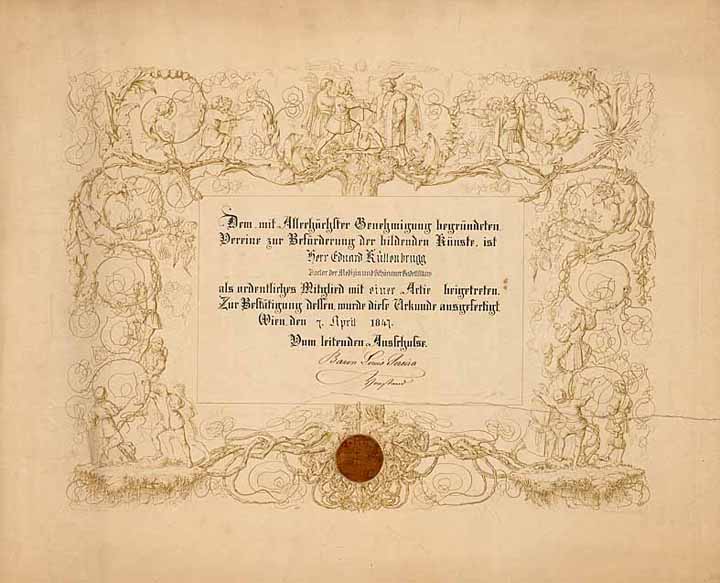 Dem mit Allerhöchster Genehmigung begründeten
Vereine zur Beförderung der bildenden Künste, ist
Herr Eduard Küllenbrugg
Doctor der Medizin und
als ordentliches Mitglied mit einer Actie beigetreten.
Zur Bestätigung dessen wurde diese Urkunde ausgefertigt
Wien, den 7. April 1847.
Vom leitenden Ausschusse.
Baron Louis Pereira